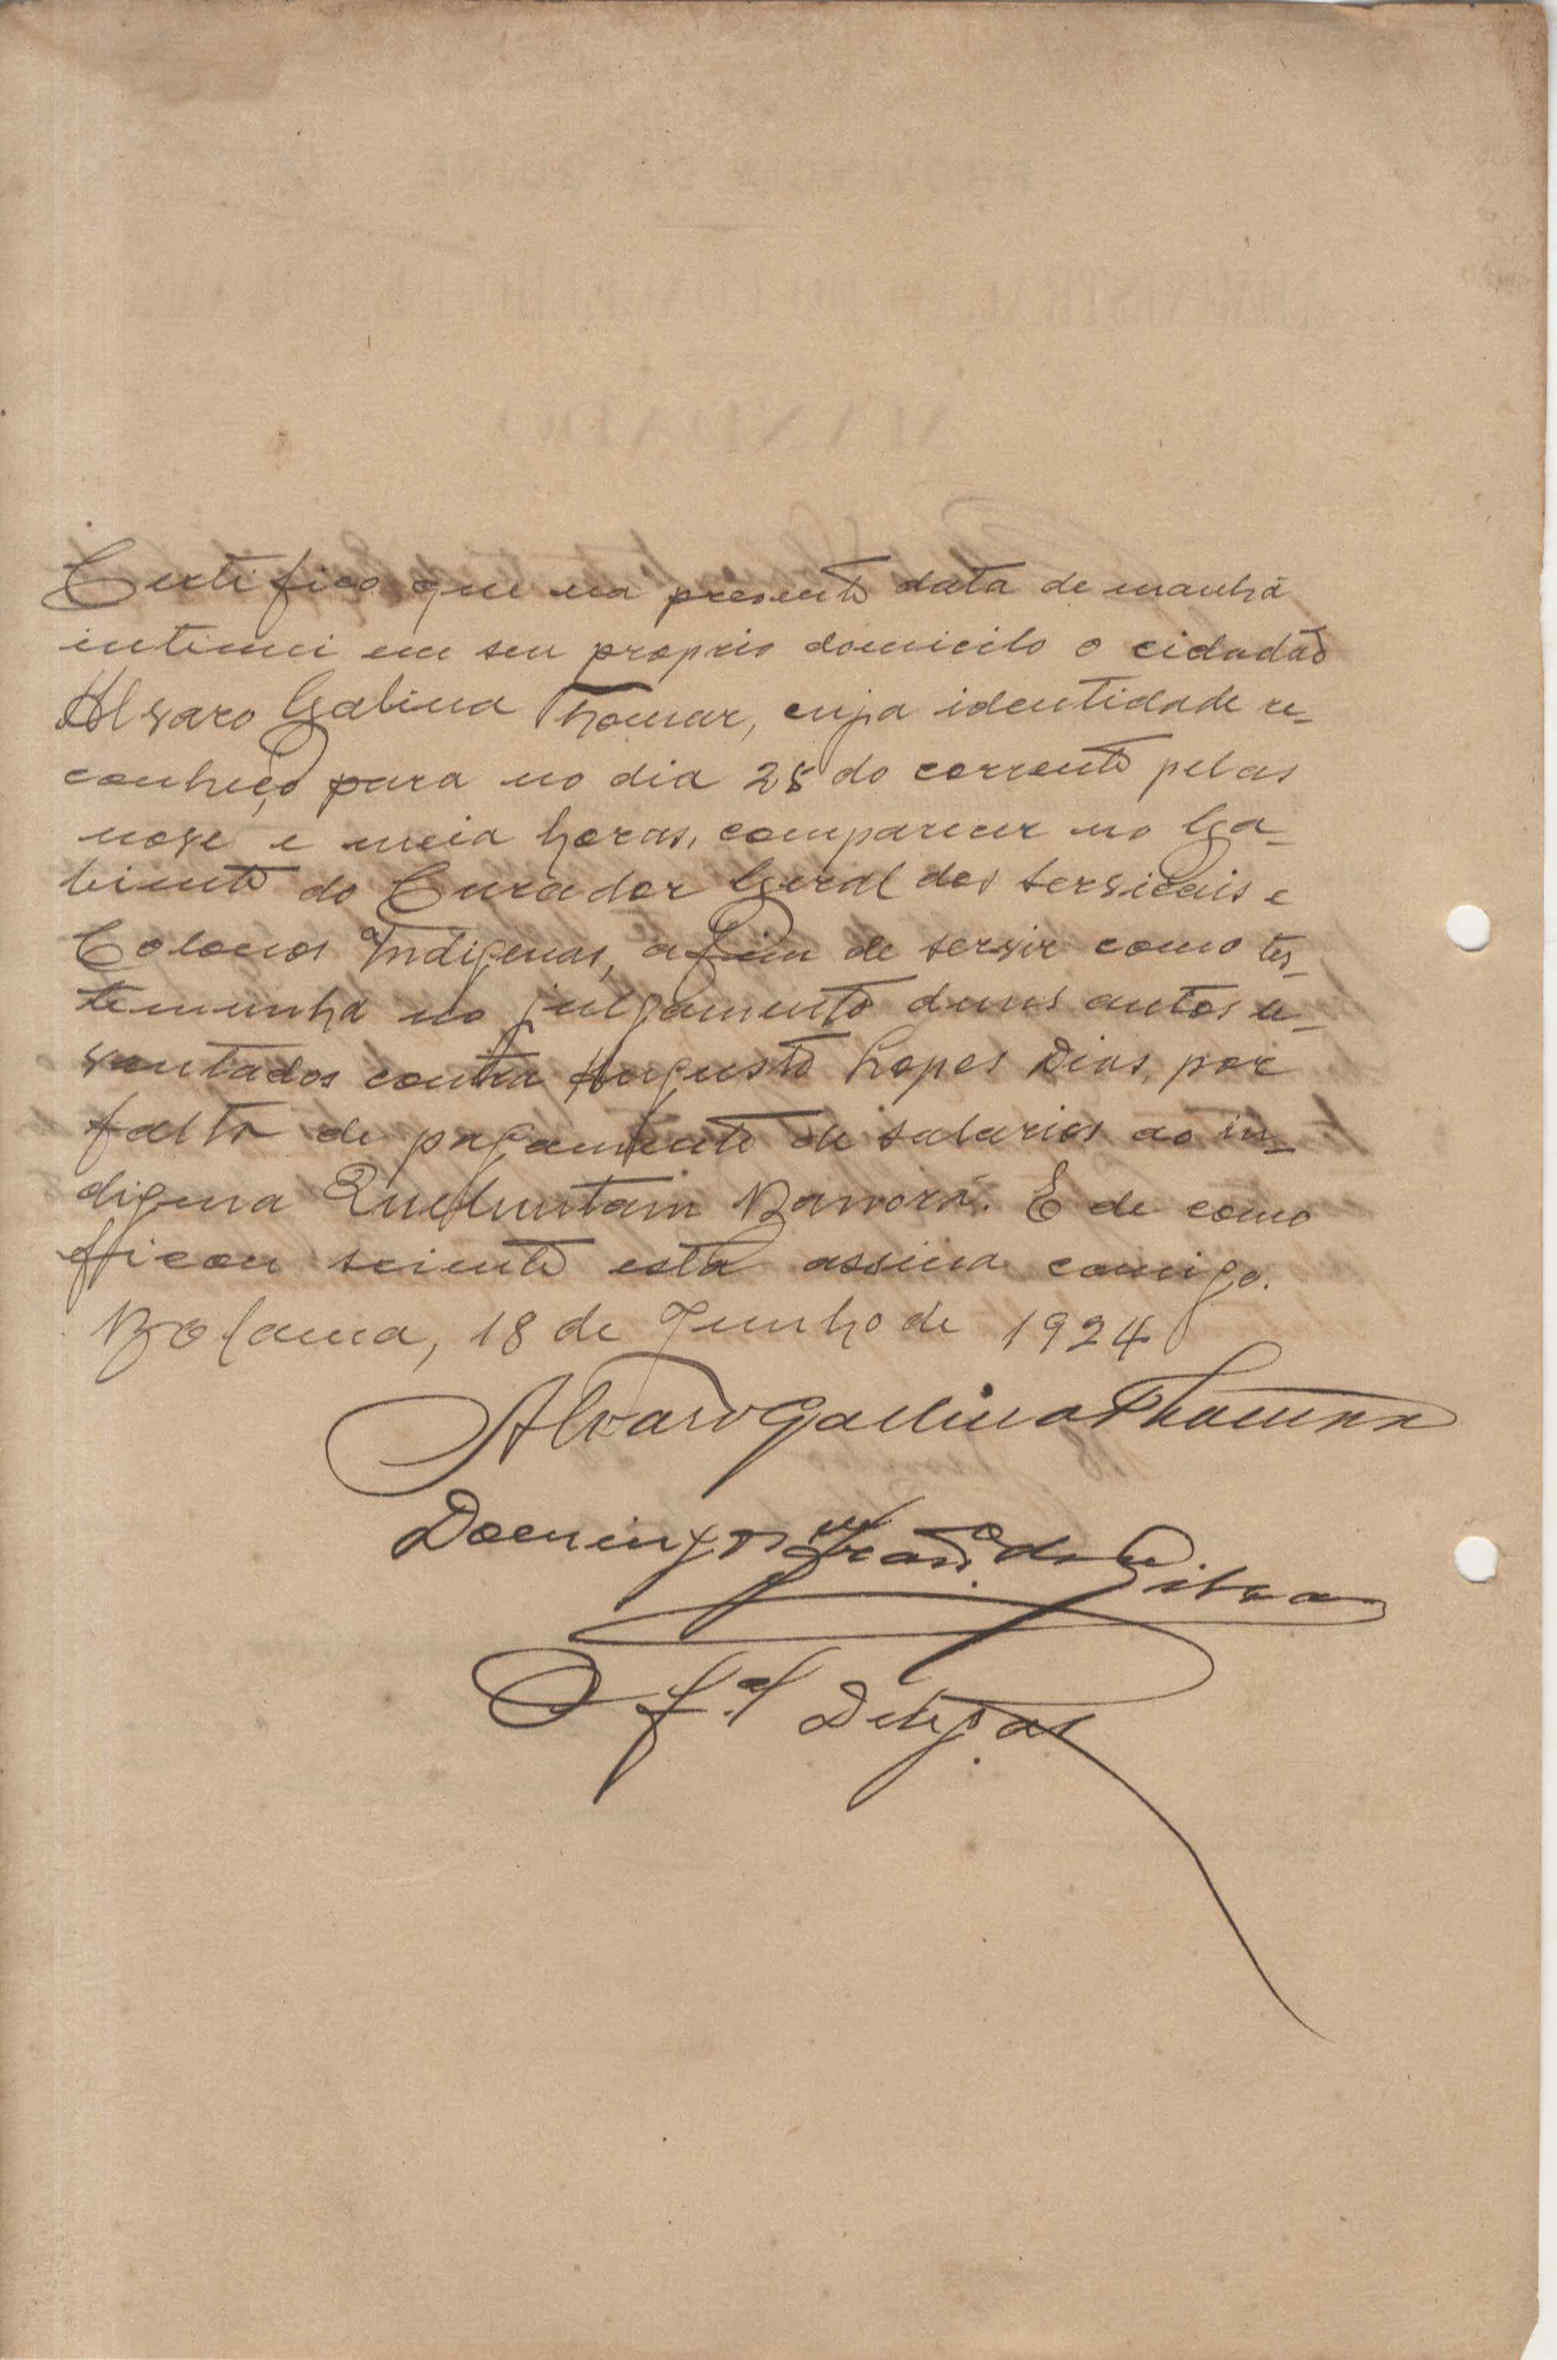 Certifico que na presente data de manhã
intimei em seu proprio domicilo o cidadão
Alvaro Galina Thomar, cuja identidade re-
conheço para no dia 25 do corrente pelas
nove e meia horas, comparecer no Ga-
binete do Curador Geral dos serviçais e
Colonos Indigenas, afim de servir como tes-
temunha no julgamento duns autos le-
vantados contra Augusto Lopes Dias, por
falta de pagamento de salarios ao in-
digena Quebuntam Banorá. E de como
fficou sciente esta assina comigo.
Bolama, 18 de Junho de 1924
Alvaro Gallina Thomar
Domingos Franco da Silva
Of.al Delig.as